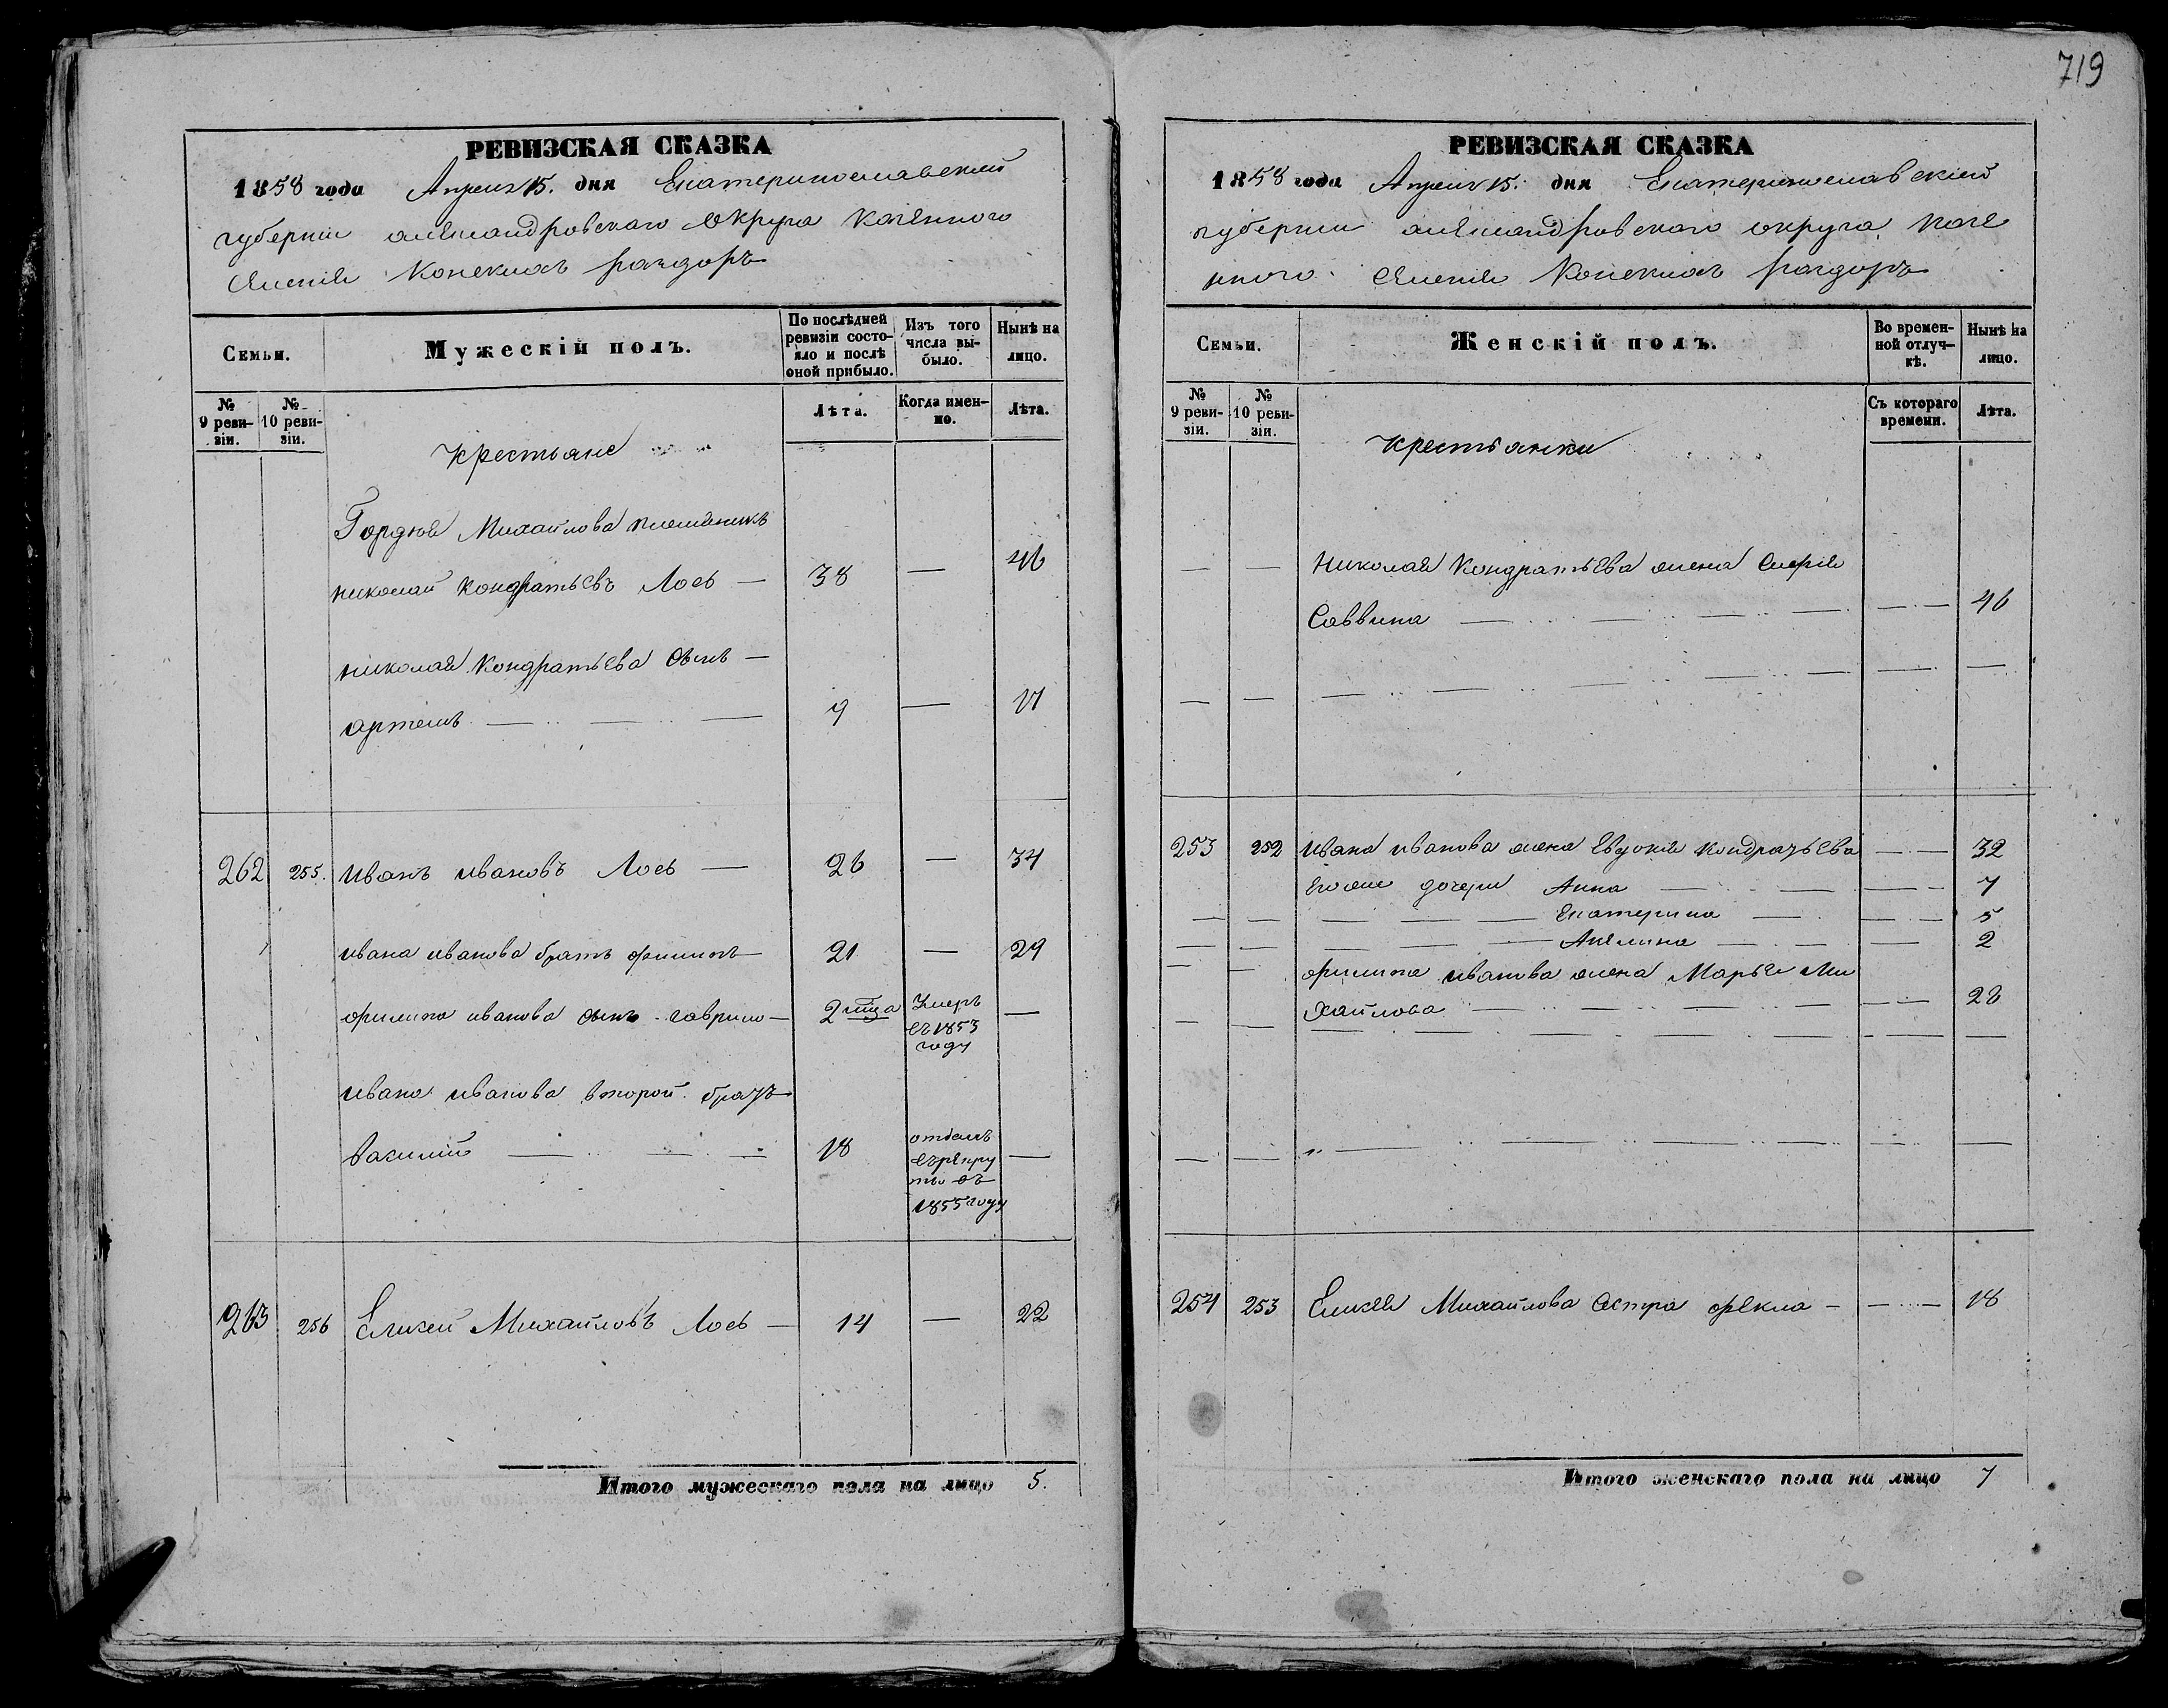 719
РЕВИЗСКАЯ СКАЗКА
1858 года Апреля 15. дня Екатеринославской
губернии александровскаго округа казенного
селения Конскихъ раздоръ
Семьи.
Мужескій полъ.
По послѣдней ревизіи состояло и послѣ оной прибыло.
Изъ того числа выбыло.
Нынѣ на лицо.
№ 9 ревизіи.
№ 10 ревизіи.
Лѣта.
Когда именно.
Лѣта.
Крестьяне
Гордѣя Михайлова племяникъ
николай Кондратьевъ Лось — 38 — 46
николая Кондратьева сынъ —
артемъ — 9 — 17
262 255. иванъ ивановъ Лось — 26 — 34
ивана иванова братъ филипъ — 21 — 29
филипа иванова сынъ гаврило — 2 мца Умеръ —
въ 1853
году
ивана иванова второй братъ
василий — 18 отданъ —
въ рекру
ты въ
1855 году
263 256 Елисей Михайловъ Лось — 14 — 22
Итого мужескаго пола на лицо 5.
РЕВИЗСКАЯ СКАЗКА
1858 года Апреля 15. дня Екатеринославской
губернии александровскаго округа казе
нного селения Конскихъ раздоръ
Семьи.
Женскій полъ.
Во временной отлучкѣ.
Нынѣ на лицо.
№ 9 ревизіи.
№ 10 ревизіи.
Съ котораго времени.
Лѣта.
Крестьянки
— — николая Кондратьева жена
Саввина — — 46
— — — — —
253 252 ивана иванова жена Евдокия Кондратьева — 32
его же дочери Анна — — 7
— — — Екатерина — — 5
— — — Акелина — — 2
— — филипа иванова жена Марья Ми
хайлова — — 28
— — — — —
— — „ — — —
254 253 Елисея Михайлова сестра фекла — — 18
Итого женскаго пола на лицо 7